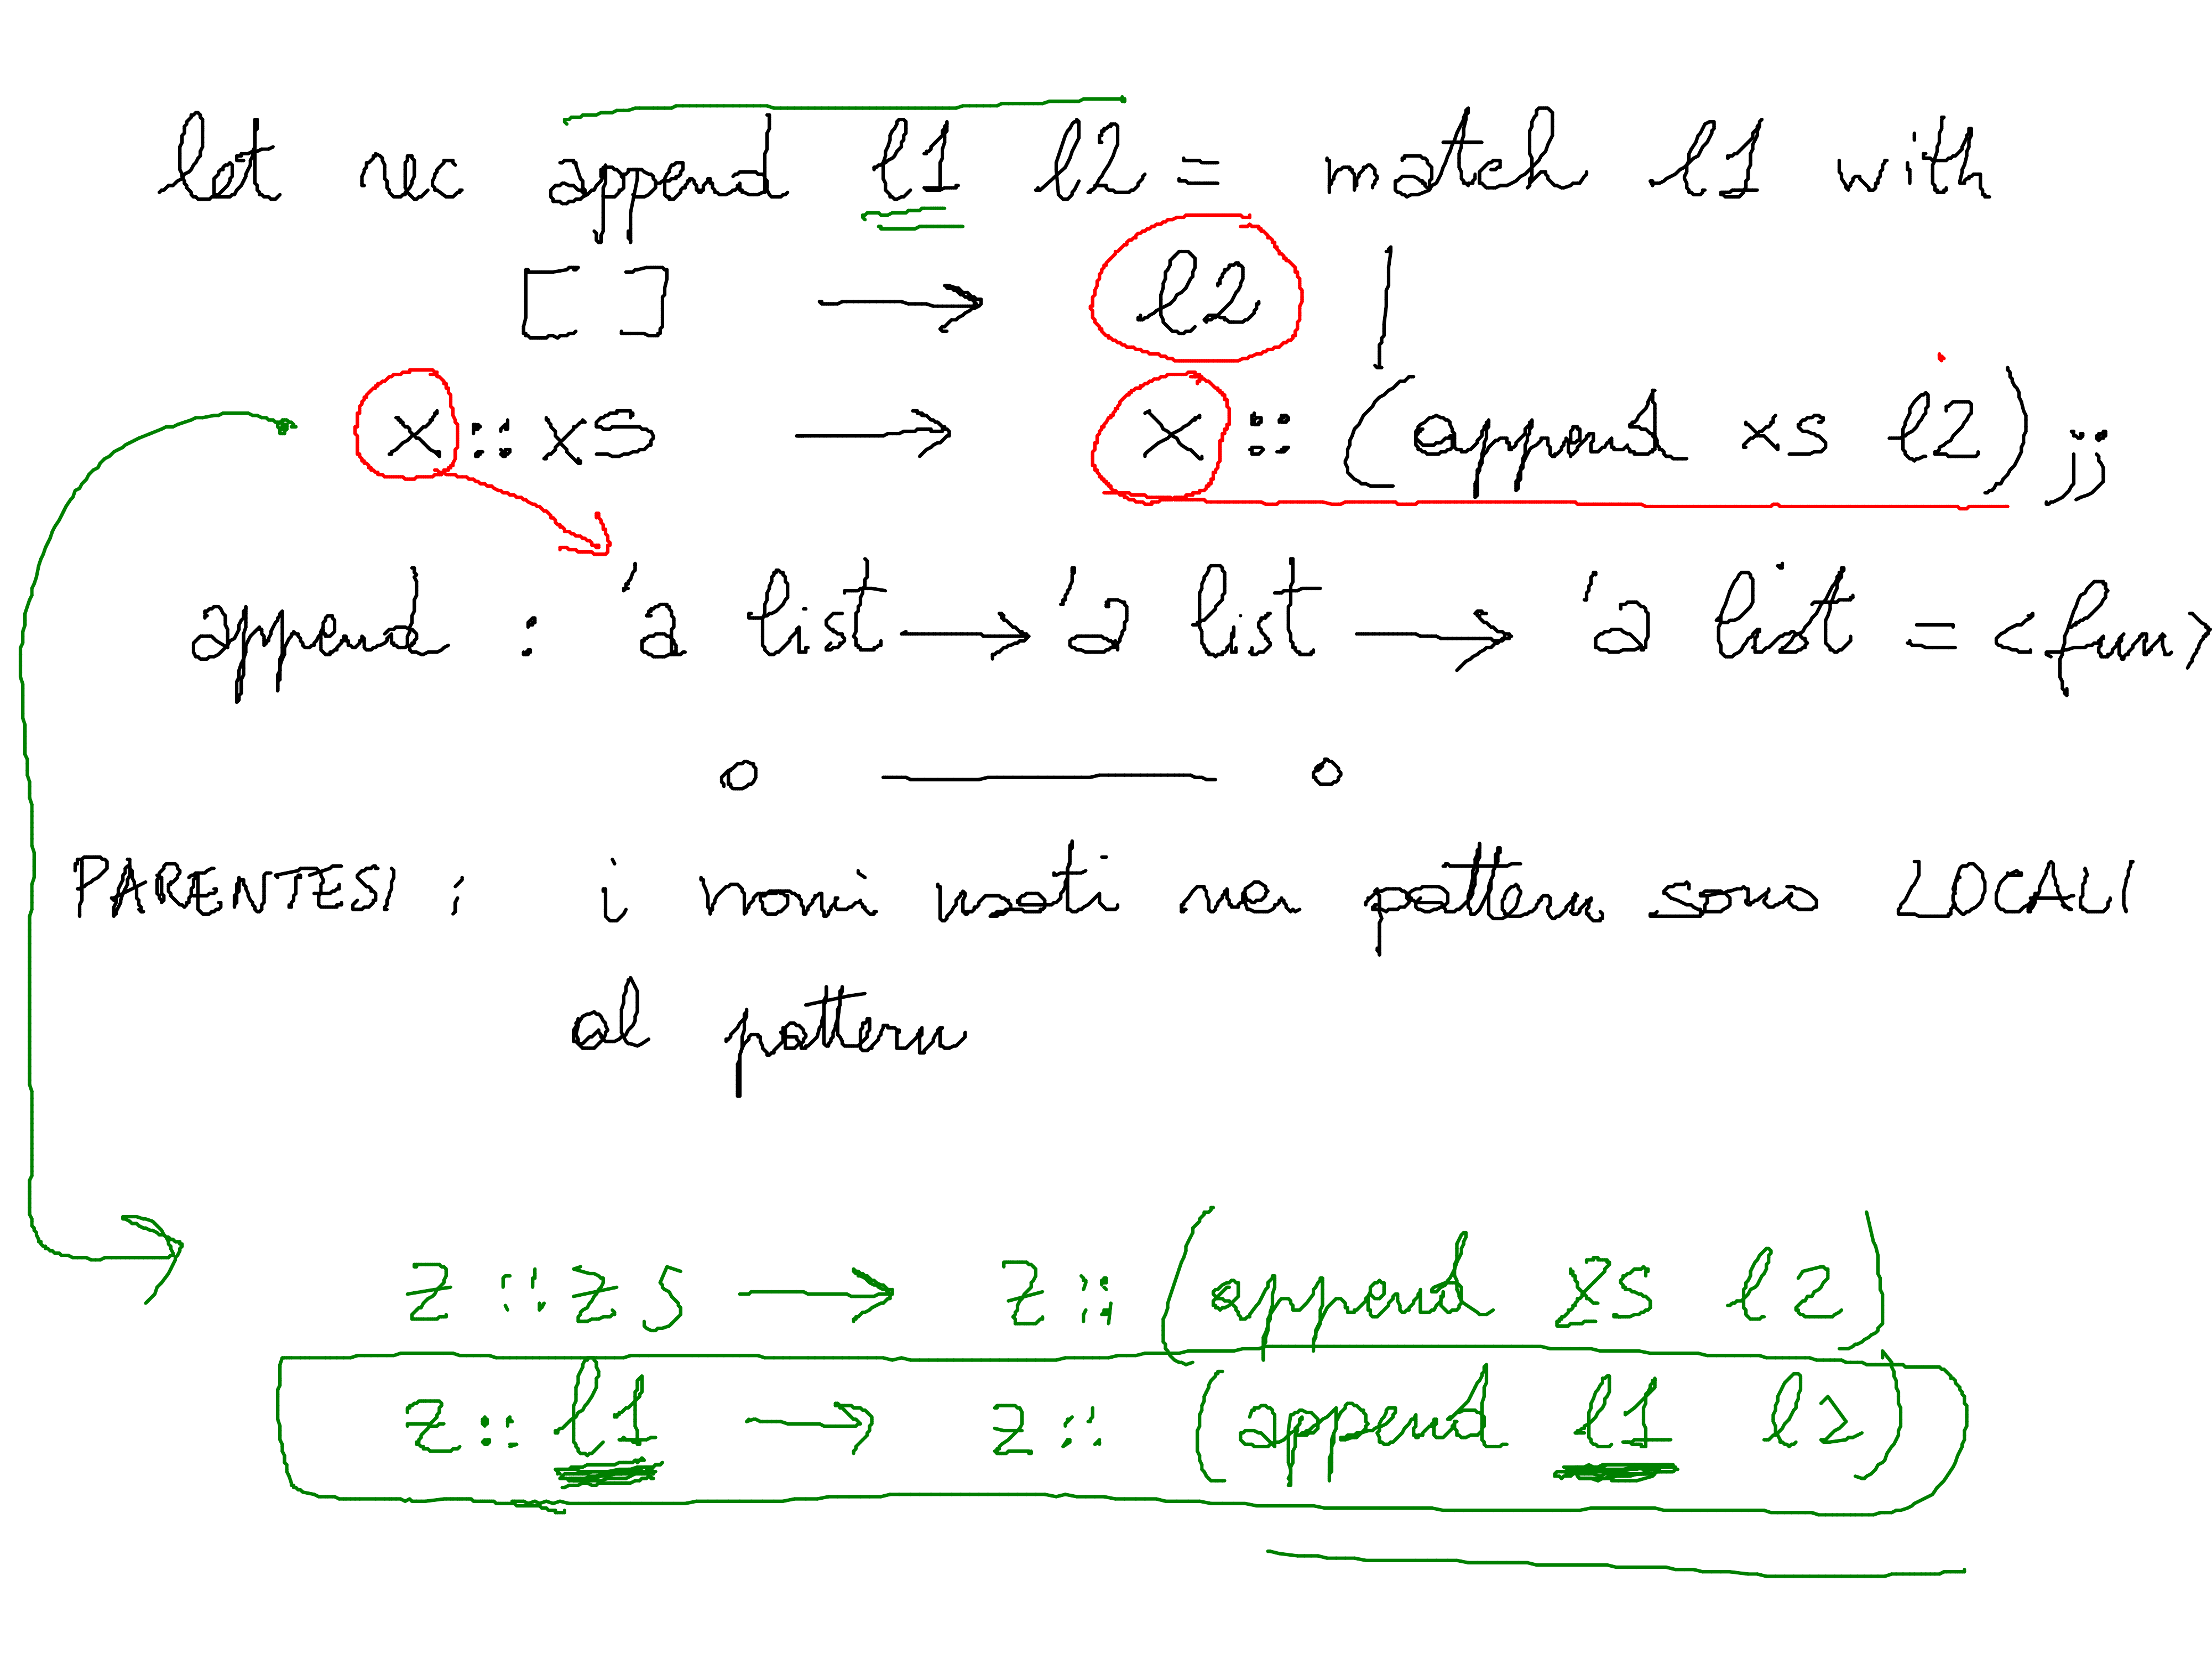 let rec append l1 l2 = match l1 with
[ ] → l2 |
x :: xs → x :: (append xs l2) ;;
append : 'a list → 'a list → 'a list = <fun>
PARENTESI : i nomi usati nei pattern sono LOCALI
al pattern
z :: zs → z :: (append zs l2)
z :: l1 → z :: (append l1 l2)